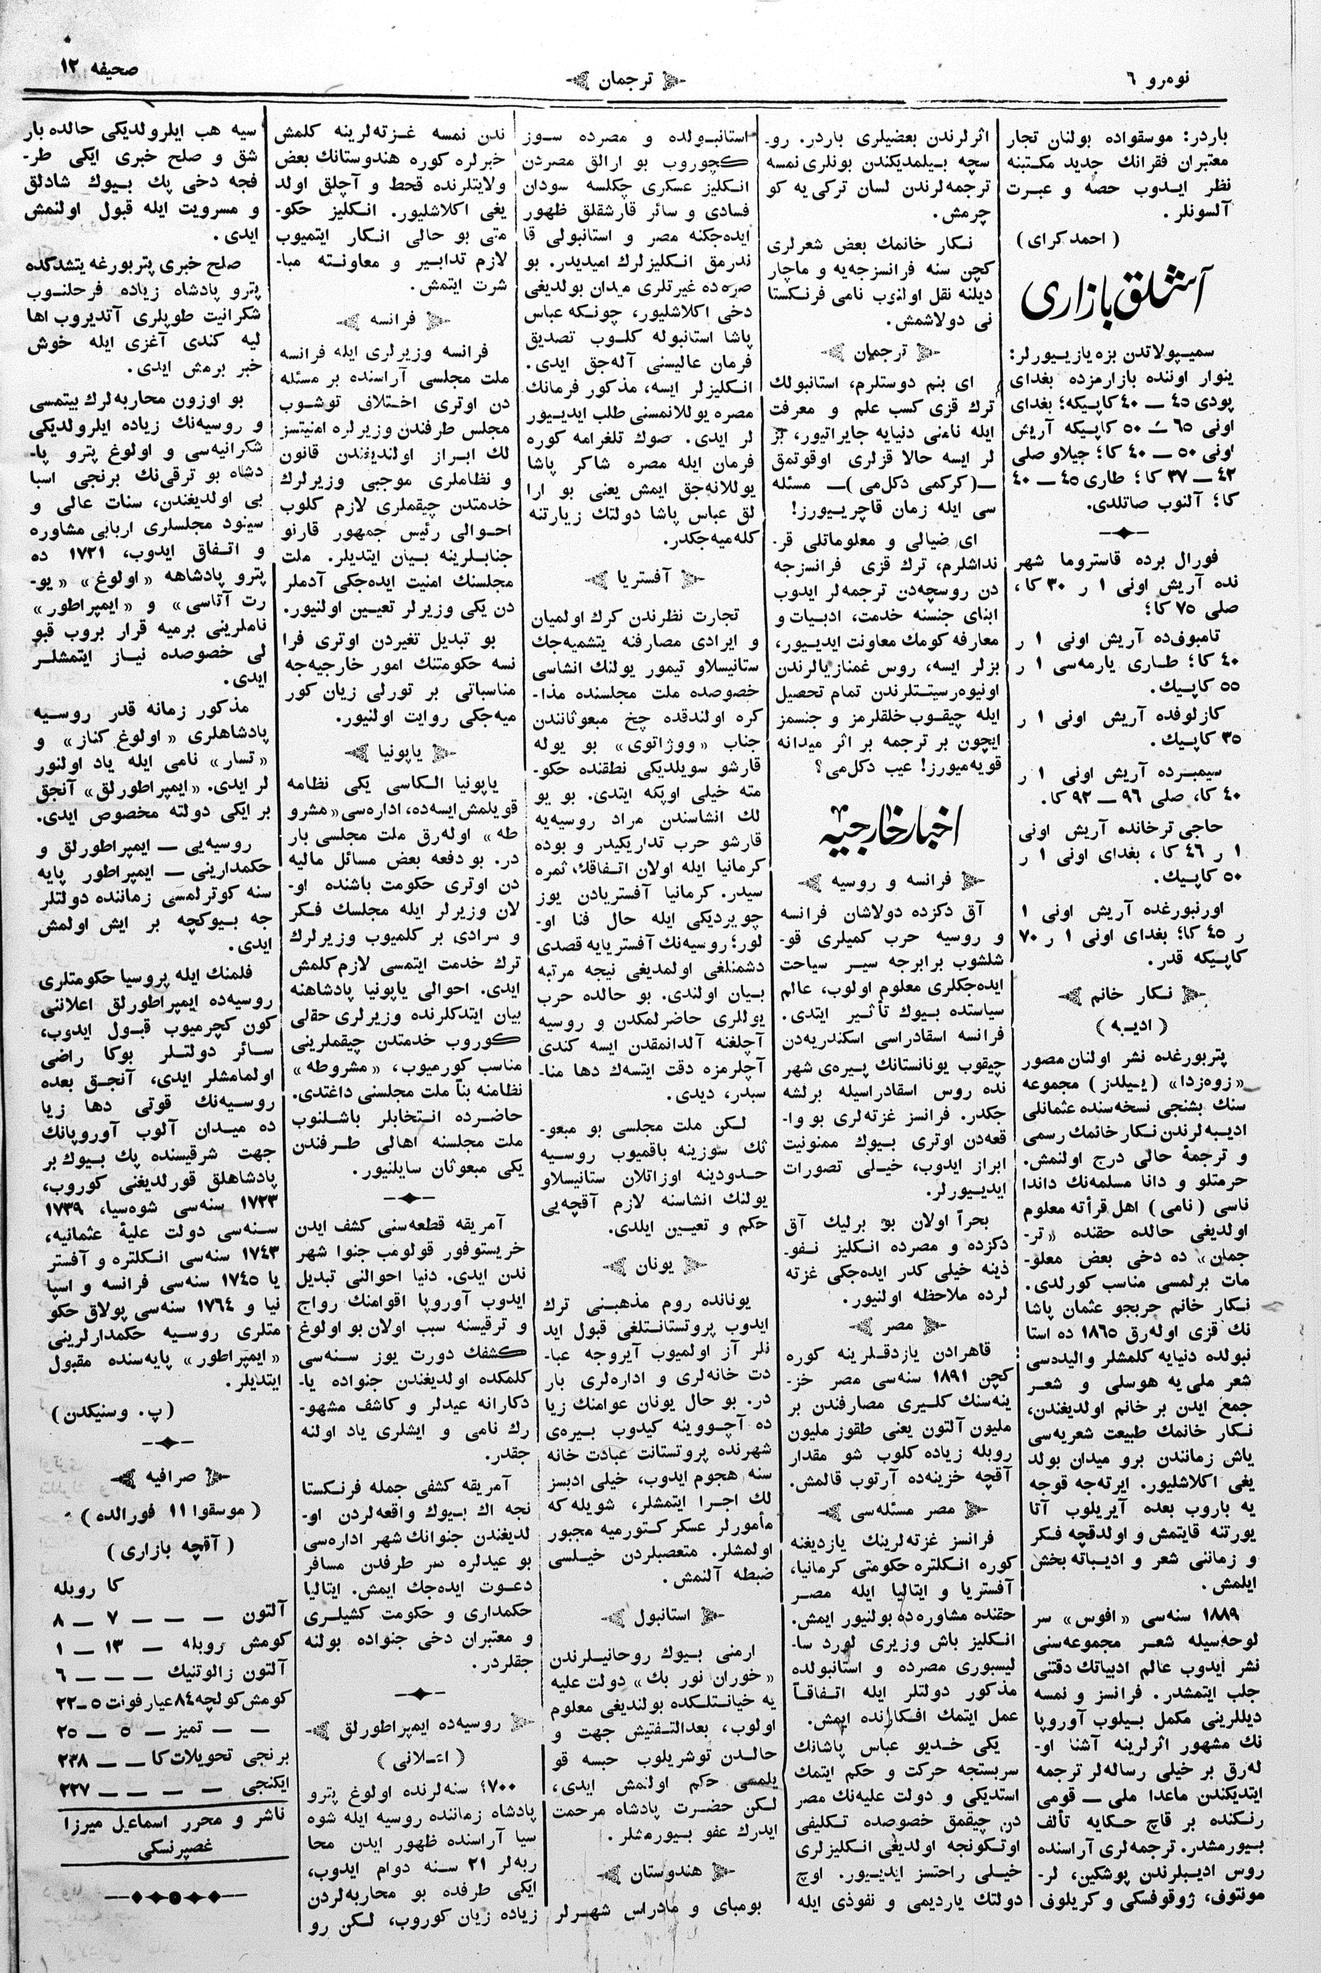 نومرو ٦
ترجمان
صحیفه ١٢
باردر: موسقواده بولنان تجار
معتبران فقرانك جدید مکتبنه
نظر ایدوب حصه و عبرت
آلسونلر.
(احمد کرای)
آشلق بازاری
سمیپولاتدن بزه یازییورلر:
ینوار اوننده بازارمزده بغدای
پودی ٤٥ — ٤٠ کاپیکه؛ بغدای
اونی ٦٥ — ٥٠ کاپیکه آریش
اونی ٥٠ — ٤٠ کا؛ جیلاو صلی
٤٢ — ٣٧ کا؛ طاری ٤٥ — ٤٠
کا؛ آلنوب صاتلدی.
فورال برده قاستروما شهر
نده آریش اونی ١ ر ٣٠ کا،
صلی ٧٥ کا؛
تامبوفده آریش اونی ١ ر
٤٠ کا؛ طاری یارمه‌سی ١ ر
٥٥ کاپیك.
کازلوفده آریش اونی ١ ر
٣٥ کاپیك.
سیمبرده آریش اونی ١ ر
٤٠ کا، صلی ٩٦ — ٩٢ کا.
حاجی ترخانده آریش اونی
١ ر ٤٦ کا، بغدای اونی ١ ر
٥٠ کاپیك.
اورنبورغده آریش اونی ١
ر ٤٥ کا؛ بغدای اونی ١ ر ٧٠
کاپیکه قدر.
نکار خانم
(ادیبه)
پتربورغده نشر اولنان مصور
«زوه‌زدا» (ییلدز) مجموعه
سنك بشنجی نسخه‌سنده عثمانلی
ادیبه‌لرندن نکار خانمك رسمی
و ترجمۀ حالی درج اولنمش.
حرمتلو و دانا مسلمه‌نك داندا
ناسی (نامی) اهل قرأته معلوم
اولدیغی حالده حقنده «تر-
جمان» ده دخی بعض معلو-
مات برلمسی مناسب کورلدی.
نکار خانم جربجو عثمان پاشا
نك قزی اوله‌رق ١٨٦٥ ده استا
نبولده دنیایه کلمشلر والیده‌سی
شعر ملی‌یه هوسلی و شعر
جمع ایدن بر خانم اولدیغندن،
نکار خانمك طبیعت شعریه‌سی
یاش زمانندن برو میدان بولد
یغی اکلاشلیور. ایرته‌جه قوجه
یه باروب بعده آیریلوب آتا
یورتنه قایتمش و اولدقچه فکر
و زمانی شعر و ادیباته بخش
ایلمش.
١٨٨٩ سنه‌سی «افوس» سر
لوحه‌سیله شعر مجموعه‌سنی
نشر ایدوب عالم ادبیاتك دقتنی
جلب ایتمشدر. فرانسز و نمسه
دیللرینی مکمل بیلوب آوروپا
نك مشهور اثرلرینه آشنا او-
له‌رق بر خیلی رساله‌لر ترجمه
ایتدیکندن ماعدا ملی — قومی
رنکنده بر قاچ حکایه تألف
بیورمشدر. ترجمه‌لری آراسنده
روس ادیبلرندن پوشکین، لر-
مونتوف، ژوقوفسکی و کریلوف
اثرلرندن بعضیلری باردر. رو-
سچه بیلمدیکندن بونلری نمسه
ترجمه‌لرندن لسان ترکی‌یه کو
چرمش.
نکار خانمك بعض شعرلری
کچن سنه فرانسزجه‌یه و ماچار
دیلنه نقل اولنوب نامی فرنکستا
نی دولاشمش.
ترجمان
ای بنم دوستلرم، استانبولك
ترك قزی کسب علم و معرفت
ایله نامنی دنیایه جایراتیور، بز
لر ایسه حالا قزلری اوقوتمق
—(کرکمی دکل‌می)— مسئله
سی ایله زمان قاچریبورز!
ای ضیالی و معلوماتلی قر-
نداشلرم، ترك قزی فرانسزجه
دن روسچه‌دن ترجمه‌لر ایدوب
ابنای جنسنه خدمت، ادبیات و
معارفه کومك معاونت ایدییور،
بزلر ایسه، روس غمنازیالرندن
اونیوه‌رسیتتلرندن تمام تحصیل
ایله چیقوب خلقلرمز و جنسمز
ایچون بر ترجمه بر اثر میدانه
قویه‌میورز! عیب دکل‌می؟
اخبار خارجیه
فرانسه و روسیه
آق دکزده دولاشان فرانسه
و روسیه حرب کمیلری قو-
شلشوب برابرجه سیر سیاحت
ایده‌جکلری معلوم اولوب، عالم
سیاستده بیوك تأثیر ایتدی.
فرانسه اسقادراسی اسکندریه‌دن
چیقوب یونانستانك پیره‌ی شهر
نده روس اسقادراسیله برلشه
جکدر. فرانسز غزته‌لری بو وا-
قعه‌دن اوتری بیوك ممنونیت
ابراز ایدوب، خیلی تصورات
ایدییورلر.
بحراً اولان بو برلیك آق
دکزده و مصرده انکلیز نفو-
ذینه خیلی کدر ایده‌جکی غزته
لرده ملاحظه اولنیور.
مصر
قاهرادن یازدقلرینه کوره
کچن ١٨٩١ سنه‌سی مصر خز-
ینه‌سنك کلیری مصارفندن بر
ملیون آلتون یعنی طقوز ملیون
روبله زیاده کلوب شو مقدار
آقچه خزینه‌ده آرتوب قالمش.
مصر مسئله‌سی
فرانسز غزته‌لرینك یازدیغنه
کوره انکلتره حکومتی کرمانیا،
آفستریا و ایتالیا ایله مصر
حقنده مشاوره‌ده بولنیور ایمش.
انکلیز باش وزیری لورد سا-
لیسبوری مصرده و استانبولده
مذکور دولتلر ایله اتفاقاً
عمل ایتمك افکارنده ایمش.
یکی خدیو عباس پاشانك
سربستجه حرکت و حکم ایتمك
استدیکی و دولت علیه‌نك مصر
دن چیقمق خصوصده تکلیفی
اوتکونجه اولدیغی انکلیزلری
خیلی راحتسز ایدییور. اوچ
دولتك یاردیمی و نفوذی ایله
استانبولده و مصرده سوز
کچوروب بو ارالق مصردن
انکلیز عسکری چکلسه سودان
فسادی و سائر قارشقلق ظهور
ایده‌جکنه مصر و استانبولی قا
ندرمق انکلیزلرك امیدیدر. بو
صره‌ده غیرتلری میدان بولدیغی
دخی اکلاشلیور، چونکه عباس
پاشا استانبوله کلوب تصدیق
فرمان عالیسنی آله‌جق ایدی.
انکلیزلر ایسه، مذکور فرمانك
مصره یوللانمسنی طلب ایدییور
لر ایدی. صوك تلغرامه کوره
فرمان ایله مصره شاکر پاشا
یوللانه‌جق ایمش یعنی بو ارا
لق عباس پاشا دولتك زیارتنه
کله‌میه‌جکدر.
آفستریا
تجارت نظرندن کرك اولمیان
و ایرادی مصارفنه یتشمیه‌جك
ستانیسلاو تیمور یولنك انشاسی
خصوصده ملت مجلسنده مذا-
کره اولندقده چخ مبعوثانندن
جناب «ووژاتوی» بو یوله
قارشو سویلدیکی نطقنده حکو-
مته خیلی اوپکه ایتدی. بو یو
لك انشاسندن مراد روسیه‌یه
قارشو حرب تدارکیدر و بوده
کرمانیا ایله اولان اتفاقك، ثمره
سیدر. کرمانیا آفستریادن یوز
چویردیکی ایله حال فنا او-
لور؛ روسیه‌نك آفستریایه قصدی
دشمنلغی اولمدیغی نیجه مرتبه
بیان اولندی. بو حالده حرب
یوللری حاضرلمکدن و روسیه
آچلغنه آلدانمقدن ایسه کندی
آچلرمزه دقت ایتسه‌ك دها منا-
سبدر، دیدی.
لکن ملت مجلسی بو مبعو-
ثك سوزینه باقمیوب روسیه
حدودینه اوزاتلان ستانیسلاو
یولنك انشاسنه لازم آقچه‌یی
حکم و تعیین ایلدی.
یونان
یونانده روم مذهبنی ترك
ایدوب پروتستانتلغی قبول اید
نلر آز اولمیوب آیروجه عبا-
دت خانه‌لری و اداره‌لری بار
در. بو حال یونان عوامنك زیا
ده آچووینه کیدوب بیره‌ی
شهرنده پروتستانت عبادت خانه
سنه هجوم ایدوب، خیلی ادبسز
لك اجرا ایتمشلر، شویله که
مأمورلر عسکر کتورمیه مجبور
اولمشلر. متعصبلردن خیلسی
ضبطه آلنمش.
استانبول
ارمنی بیوك روحانیلرندن
«خوران نور بك» دولت علیه
یه خیانتلکده بولندیغی معلوم
اولوب، بعدالتفتیش جهت و
حالدن توشریلوب حبسه قو
یلمسی حکم اولنمش ایدی،
لکن حضرت پادشاه مرحمت
ایدرك عفو بیورمشلر.
هندوستان
بومبای و مادراس شهرلر
ندن نمسه غزته‌لرینه کلمش
خبرلره کوره هندوستانك بعض
ولایتلرنده قحط و آچلق اولد
یغی اکلاشلیور. انکلیز حکو-
متی بو حالی انکار ایتمیوب
لازم تدابیر و معاونته مبا-
شرت ایتمش.
فرانسه
فرانسه وزیرلری ایله فرانسه
ملت مجلسی آراسنده بر مسئله
دن اوتری اختلاف توشوب
مجلس طرفندن وزیرلره امنیتسز
لك ابراز اولندیغندن قانون
و نظاملری موجبی وزیرلرك
خدمتدن چیقملری لازم کلوب
احوالی رئیس جمهور قارنو
جنابلرینه بیان ایتدیلر. ملت
مجلسنك امنیت ایده‌جکی آدملر
دن یکی وزیرلر تعیین اولنیور.
بو تبدیل تغیردن اوتری فرا
نسه حکومتنك امور خارجیه‌جه
مناسباتی بر تورلی زیان کور
میه‌جکی روایت اولنیور.
یاپونیا
یاپونیا الکاسی یکی نظامه
قویلمش ایسه‌ده، اداره‌سی «مشرو
طه» اوله‌رق ملت مجلسی بار
در. بو دفعه بعض مسائل مالیه
دن اوتری حکومت باشنده او-
لان وزیرلر ایله مجلسك فکر
و مرادی بر کلمیوب وزیرلرك
ترك خدمت ایتمسی لازم کلمش
ایدی. احوالی یاپونیا پادشاهنه
بیان ایتدکلرنده وزیرلری حقلی
کوروب خدمتدن چیقملرینی
مناسب کورمیوب، «مشروطه»
نظامنه بنأ ملت مجلسنی داغتدی.
حاضرده انتخابلر باشلنوب
ملت مجلسنه اهالی طرفندن
یکی مبعوثان سایلنیور.
آمریقه قطعه‌سنی کشف ایدن
خریستوفور قولومب جنوا شهر
ندن ایدی. دنیا احوالنی تبدیل
ایدوب آوروپا اقوامنك رواج
و ترقیسنه سبب اولان بو اولوغ
کشفك دورت یوز سنه‌سی
کلمکده اولدیغندن جنواده یا-
دکارانه عیدلر و کاشف مشهو-
رك نامی و ایشلری یاد اولنه
جقدر.
آمریقه کشفی جمله فرنکستا
نجه اك بیوك واقعه‌لردن او-
لدیغندن جنوانك شهر اداره‌سی
بو عیدلره هر طرفدن مسافر
دعوت ایده‌جك ایمش. ایتالیا
حکمداری و حکومت کشیلری
و معتبران دخی جنواده بولنه
جقلردر.
روسیه‌ده ایمپراطورلق
(اعلانی)
١٧٠٠ سنه‌لرنده اولوغ پترو
پادشاه زماننده روسیه ایله شوه
سیا آراسنده ظهور ایدن محا
ربه‌لر ٢١ سنه دوام ایدوب،
ایکی طرفده بو محاربه‌لردن
زیاده زیان کوروب، لکن رو
سیه هب ایلرولدیکی حالده بار
شق و صلح خبری ایکی طر-
فجه دخی پك بیوك شادلق
و مسرویت ایله قبول اولنمش
ایدی.
صلح خبری پتربورغه یتشدکده
پترو پادشاه زیاده فرحلنوب
شکرانیت طوپلری آتدیروب اها
لیه کندی آغزی ایله خوش
خبر برمش ایدی.
بو اوزون محاربه‌لرك بیتمسی
و روسیه‌نك زیاده ایلرولدیکی
شکرانیه‌سی و اولوغ پترو پا-
دشاه بو ترقی‌نك برنجی اسبا
بی اولدیغندن، سنات عالی و
سینود مجلسلری اربابی مشاوره
و اتفاق ایدوب، ١٧٢١ ده
پترو پادشاهه «اولوغ» «یو-
رت آتاسی» و «ایمپراطور»
ناملرینی برمیه قرار بروب قبو
لی خصوصده نیاز ایتمشلر
ایدی.
مذکور زمانه قدر روسیه
پادشاهلری «اولوغ کناز» و
«تسار» نامی ایله یاد اولنور
لر ایدی. «ایمپراطورلق» آنجق
بر ایکی دولته مخصوص ایدی.
روسیه‌یی — ایمپراطورلق و
حکمدارینی — ایمپراطور پایه
سنه کوترلمسی زماننده دولتلر
جه بیوکچه بر ایش اولمش
ایدی.
فلمنك ایله پروسیا حکومتلری
روسیه‌ده ایمپراطورلق اعلاننی
کون کچرمیوب قبول ایدوب،
سائر دولتلر بوکا راضی
اولمامشلر ایدی، آنجق بعده
روسیه‌نك قوتی دها زیا
ده میدان آلوب آوروپانك
جهت شرقیسنده پك بیوك بر
پادشاهلق قورلدیغنی کوروب،
١٧٢٣ سنه‌سی شوه‌سیا، ١٧٣٩
سنه‌سی دولت علیۀ عثمانیه،
١٧٤٣ سنه‌سی انکلتره و آفستر
یا ١٧٤٥ سنه‌سی فرانسه و اسپا
نیا و ١٧٦٤ سنه‌سی پولاق حکو
متلری روسیه حکمدارلرینی
«ایمپراطور» پایه‌سنده مقبول
ایتدیلر.
(پ. وستنیکدن)
صرافیه
(موسقوا ١١ فورالده)
(آقچه بازاری)
کا روبله
آلتون — — — ٧ — ٨
کومش روبله — ١٣ — ١
آلتون زالوتنیك — — — ٦
کومش کولچه ٨٤ عیار فونت ٥ — ٢٢
— — تمیز — ٥ — ٢٥
برنجی تحویلات کا — — ٢٣٨
ایکنجی — — — — ٢٢٧
ناشر و محرر اسماعیل میرزا
غصپرنسکی